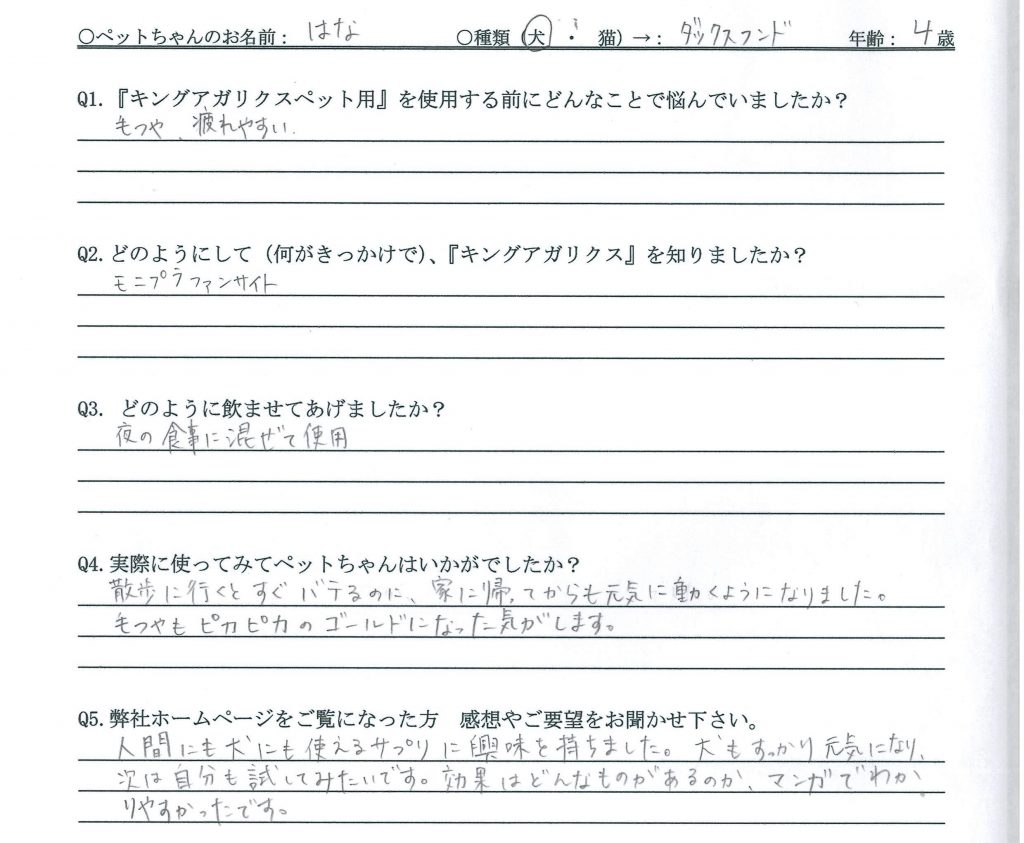 ○ペットちゃんのお名前： はな ○種類（犬 ・ 猫）→： ダックスフンド 年齢： 4 歳
Q1.『キングアガリクスペット用』を使用する前にどんなことで悩んでいましたか？
毛つや、疲れやすい.
Q2. どのようにして（何がきっかけで）、『キングアガリクス』を知りましたか？
モニプラファンサイト
Q3. どのように飲ませてあげましたか？
夜の食事に混ぜて使用
Q4. 実際に使ってみてペットちゃんはいかがでしたか？
散歩に行くとすぐバテるのに、家に帰ってからも元気に動くようになりました。
毛つやもピカピカのゴールドになった気がします。
Q5. 弊社ホームページをご覧になった方　感想やご要望をお聞かせ下さい。
人間にも犬にも使えるサプリに興味を持ちました。犬もすっかり元気になり、
次は自分も試してみたいです。効果はどんなものがあるのか、マンガでわか
りやすかったです。